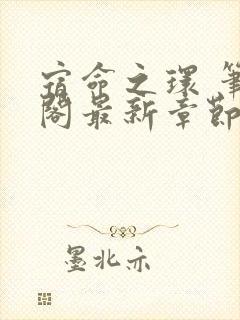 宿命之環 筆
閣最新章節
墨北亦